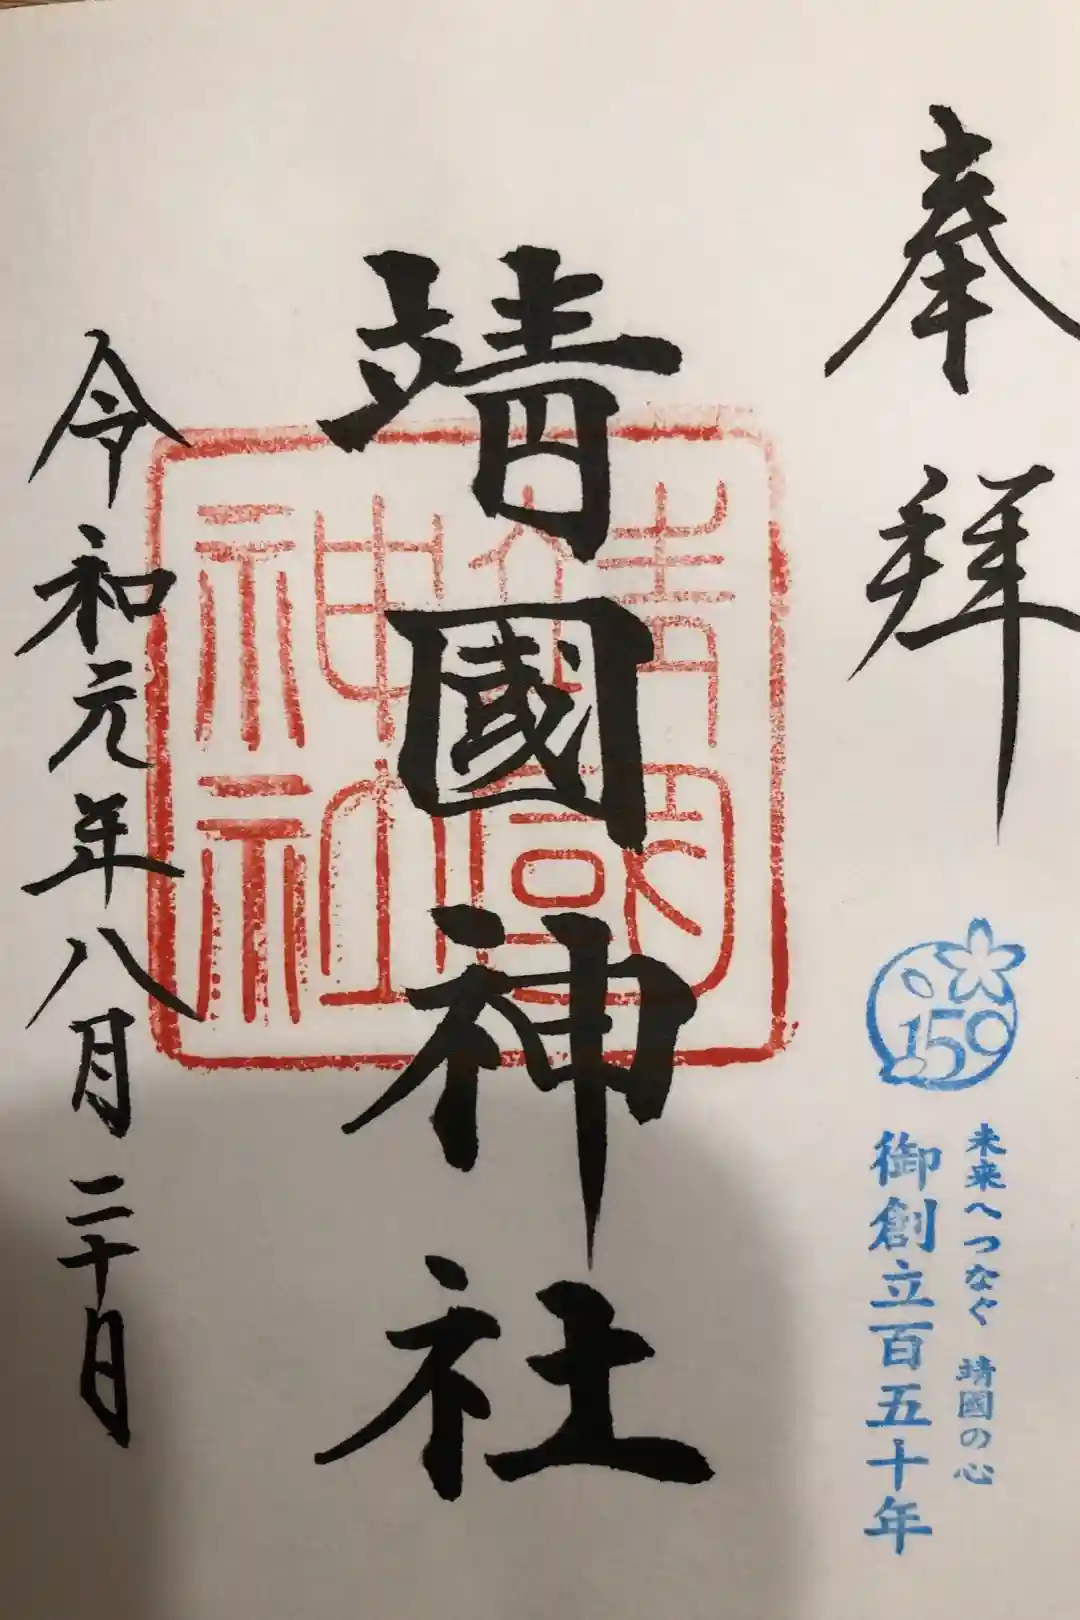 奉拝
159
未来へつなぐ 靖國の心
御創立百五十年
靖國神社
靖國神社
令和元年八月二十日